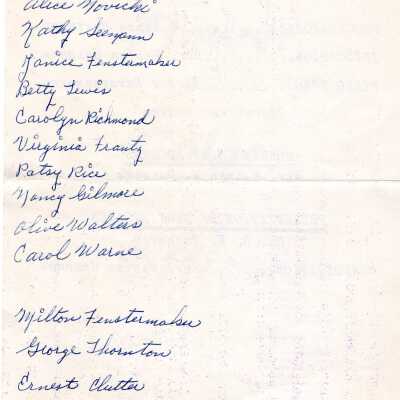 Alice Novicki
Kathy Seemann
Janice Fenstermaker
Betty Lewis
Carolyn Richmond
Virginia Frantz
Patsy Rice
Nancy Gilmore
Olive Walters
Carol Warne
Milton Fenstermaker
George Thornton
Ernest Clutter